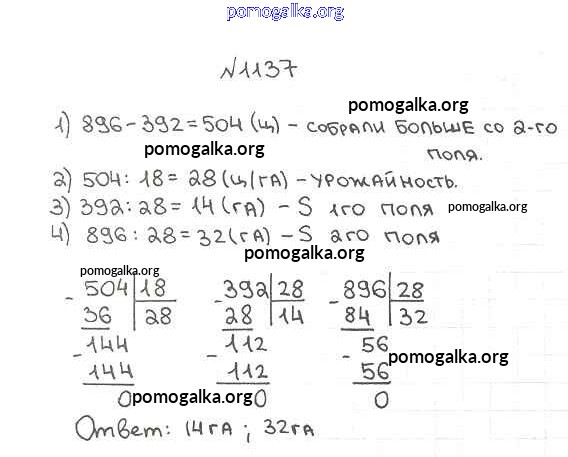 pomogalka.org
№1137
1) 896 - 392 = 504 (ц) - собрали больше со 2-го
pomogalka.org
поля.
pomogalka.org
2) 504 : 18 = 28 (ц/га) - урожайность.
3) 392 : 28 = 14 (га) - S 1го поля
pomogalka.org
4) 896 : 28 = 32 (га) - S 2го поля
pomogalka.org
pomogalka.org
- 504 | 18 - 392 | 28 - 896 | 28
36 | 28 28 | 14 84 | 32
- 144 - 112 - 56
144 112 56
pomogalka.org
0 0 0
pomogalka.org
Ответ: 14 га ; 32 га